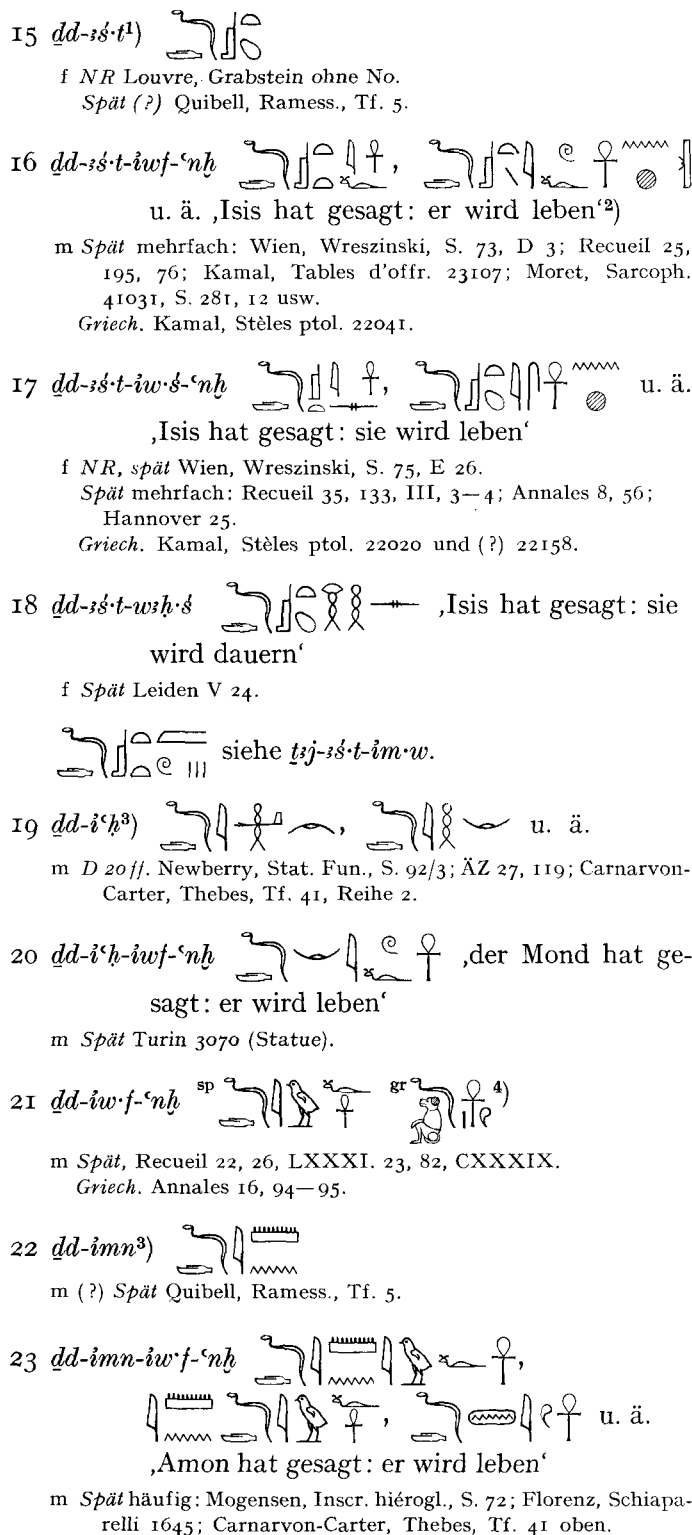 15 ḏd-ꜣś·t¹)
f NR Louvre, Grabstein ohne No.
Spät (?) Quibell, Ramess., Tf. 5.
16 ḏd-ꜣś·t-ỉwf-ꜥnḫ
u. ä. ‚Isis hat gesagt: er wird leben‘²)
m Spät mehrfach: Wien, Wreszinski, S. 73, D 3; Recueil 25,
195, 76; Kamal, Tables d'offr. 23107; Moret, Sarcoph.
41031, S. 281, 12 usw.
Griech. Kamal, Stèles ptol. 22041.
17 ḏd-ꜣś·t-ỉw·ś-ꜥnḫ , u. ä.
‚Isis hat gesagt: sie wird leben‘
f NR, spät Wien, Wreszinski, S. 75, E 26.
Spät mehrfach: Recueil 35, 133, III, 3—4; Annales 8, 56;
Hannover 25.
Griech. Kamal, Stèles ptol. 22020 und (?) 22158.
18 ḏd-ꜣś·t-wꜣḥ·ś ‚Isis hat gesagt: sie
wird dauern‘
f Spät Leiden V 24.
siehe ṯꜣj-ꜣś·t-ỉm·w.
19 ḏd-ỉꜥḥ³) , u. ä.
m D 20ff. Newberry, Stat. Fun., S. 92/3; ÄZ 27, 119; Carnarvon-
Carter, Thebes, Tf. 41, Reihe 2.
20 ḏd-ỉꜥḥ-ỉwf-ꜥnḫ ‚der Mond hat ge-
sagt: er wird leben‘
m Spät Turin 3070 (Statue).
21 ḏd-ỉw·f-ꜥnḫ sp gr ⁴)
m Spät, Recueil 22, 26, LXXXI. 23, 82, CXXXIX.
Griech. Annales 16, 94—95.
22 ḏd-ỉmn³)
m (?) Spät Quibell, Ramess., Tf. 5.
23 ḏd-ỉmn-ỉw·f-ꜥnḫ ,
, u. ä.
‚Amon hat gesagt: er wird leben‘
m Spät häufig: Mogensen, Inscr. hiérogl., S. 72; Florenz, Schiapa-
relli 1645; Carnarvon-Carter, Thebes, Tf. 41 oben.